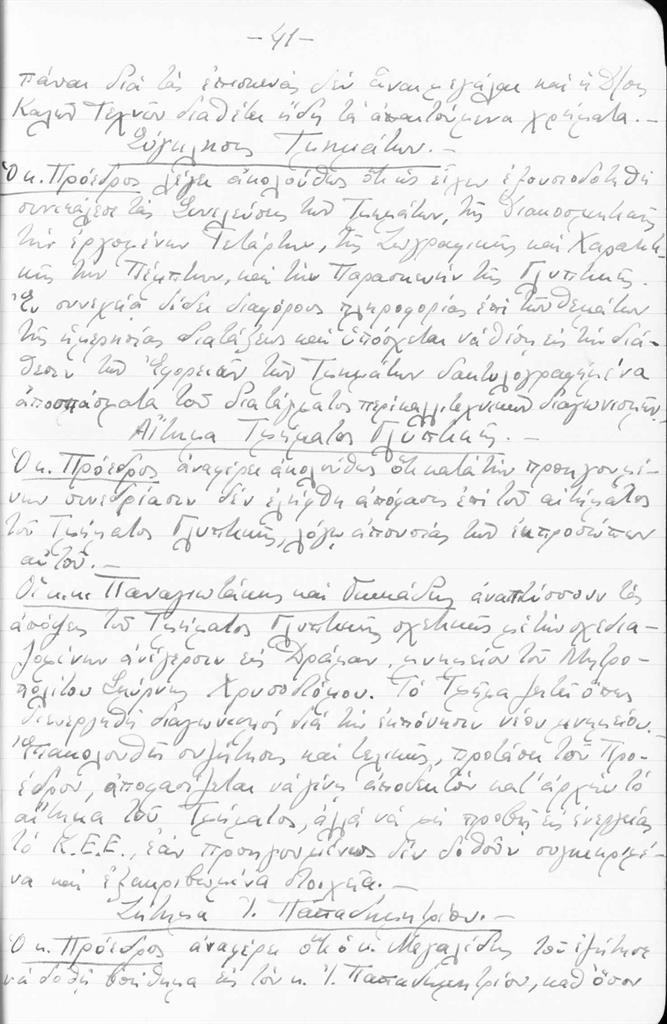 - 41 -
πάναι διά τάς ἐπισκευάς δέν εἶναι μεγάλαι καί ἡ Δ/σις
Καλῶν Τεχνῶν διαθέτει ἤδη τά ἀπαιτούμενα χρήματα. -
Σύγκλησις Τμημάτων. -
Ὁ κ. Πρόεδρος λέγει ἀκολούθως ὅτι ὡς εἶχεν ἐξουσιοδοτηθῆ
συνεκάλεσε τάς Συνελεύσεις τῶν Τμημάτων, τῆς Διακοσμητικῆς
τήν ἐρχομένην Τετάρτην, τῆς Ζωγραφικῆς καί Χαρακτι-
κῆς τήν Πέμπτην, καί τήν Παρασκευήν τῆς Γλυπτικῆς.
Ἐν συνεχείᾳ δίδει διαφόρους πληροφορίας ἐπί τῶν θεμάτων
τῆς ἡμερησίας διατάξεως καί ὑπόσχεται νά θέσῃ εἰς τήν διά-
θεσιν τῶν Ἐφορειῶν τῶν Τμημάτων δακτυλογραφημένα
ἀποσπάσματα τοῦ διατάγματος περί καλλιτεχνικῶν διαγωνισμῶν.
Αἴτημα Τμήματος Γλυπτικῆς. -
Ὁ κ. Πρόεδρος ἀναφέρει ἀκολούθως ὅτι κατά τήν προηγουμέ-
νην συνεδρίασιν δέν ἐλήφθη ἀπόφασις ἐπί τοῦ αἰτήματος
τοῦ Τμήματος Γλυπτικῆς, λόγῳ ἀπουσίας τῶν ἐκπροσώπων
αὐτοῦ. -
Οἱ κ.κ. Παναγιωτάκης καί ἀναπτύσσουν τάς
ἀπόψεις τοῦ Τμήματος Γλυπτικῆς σχετικῶς μέ τήν σχεδια-
ζομένην ἀνέγερσιν εἰς Δράμαν, μνημείου τοῦ Μητρο-
πολίτου Σμύρνης Χρυσοστόμου. Τό Τμῆμα ζητεῖ ὅπως
διενεργηθῆ διαγωνισμός διά τήν ἐκπόνησιν νέου μνημείου.
Ἐπακολουθεῖ συζήτησις καί τελικῶς, προτάσει τοῦ Προ-
έδρου, ἀποφασίζεται νά γίνῃ ἀποδεκτόν κατ' ἀρχήν τό
αἴτημα τοῦ Τμήματος, ἀλλά νά μή προβῆ εἰς ἐνεργείας
τό Κ.Ε.Ε., ἐάν προηγουμένως δέν δοθοῦν συγκεκριμέ-
να καί ἐξακριβωμένα στοιχεῖα. -
Ζήτημα Ἰ. Παπαδημητρίου. -
Ὁ κ. Πρόεδρος ἀναφέρει ὅτι ὁ κ. Μεγαλίδης τοῦ ἐζήτησε
νά δοθῆ βοήθημα εἰς τόν κ. Ἰ. Παπαδημητρίου, καθ' ὅσον